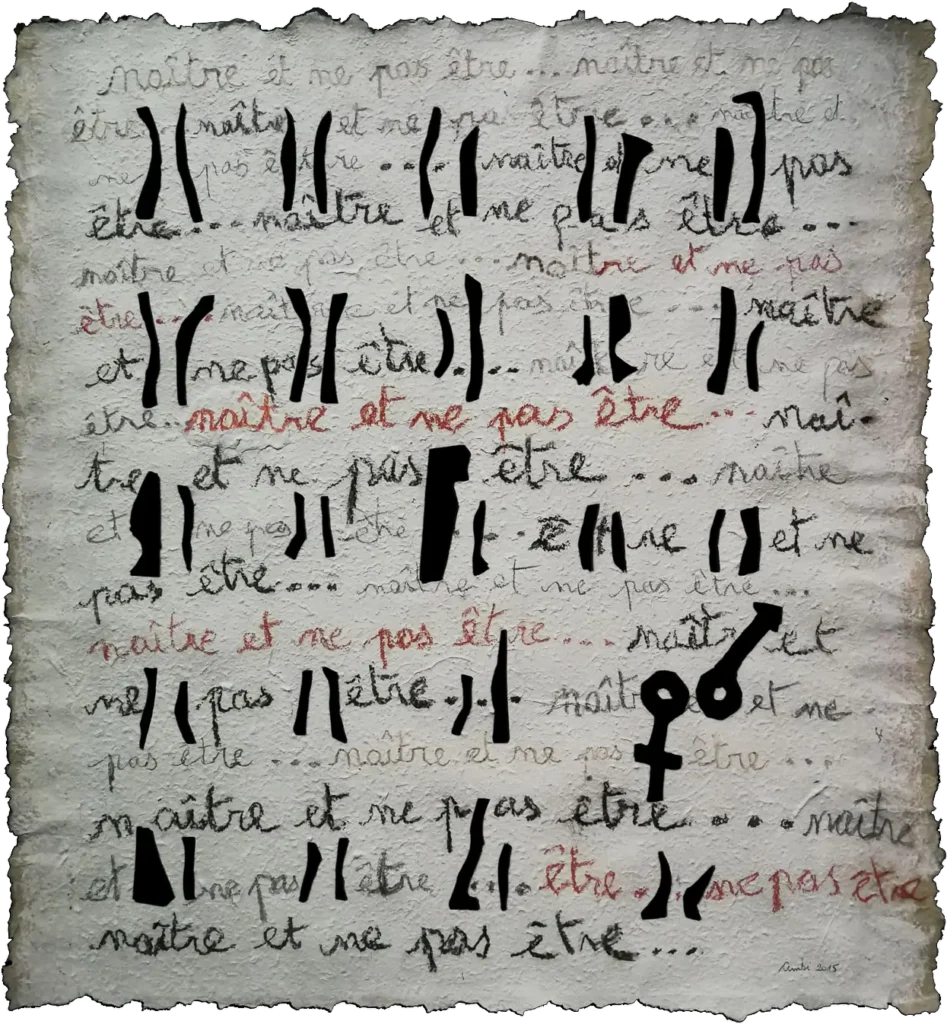 naître et ne pas être... naître et ne pas
être... naître et ne pas être... naître et
ne pas être .... naître et ne pas
être... naître et ne pas être...
naître et ne pas être... naître et ne pas
être.... naître et ne pas être .... naître
et ne pas être.... naître et ne pas
être.. naître et ne pas être... naî-
tre et ne pas être ... naître
et ne pas être ... être et ne
pas être... naître et ne pas être...
naître et ne pas être... naître et
ne pas être... naître et ne
pas être ... naître et ne pas être ...
naître et ne pas être .... naître
et ne pas être ... être... ne pas être
naître et ne pas être ...
2015